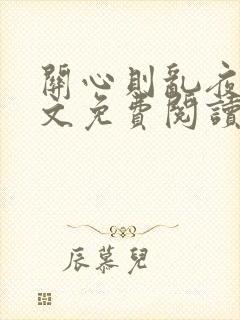 關心則亂夜
文免費閱讀
辰慕兒